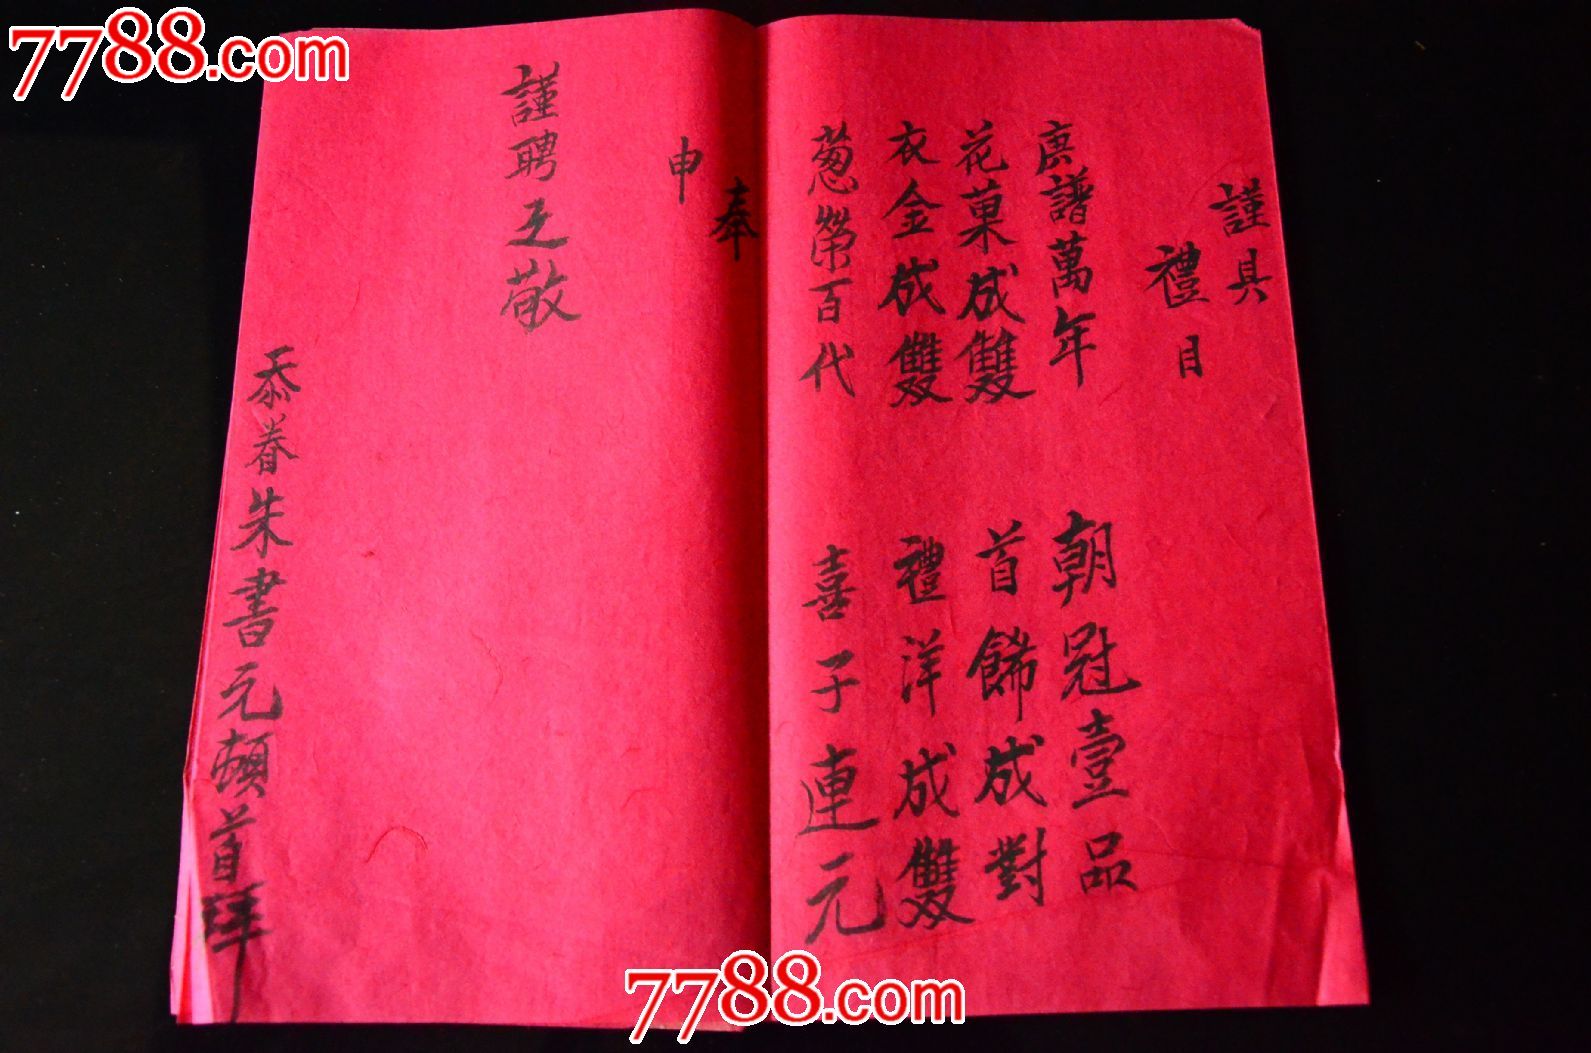 7788.com
謹具
禮目
庚譜萬年
朝冠壹品
花菓成雙
首餙成對
衣金成雙
禮洋成雙
葱榮百代
喜子連元
奉
申
謹聘之敬
忝眷朱書元頓首拜
7788.com